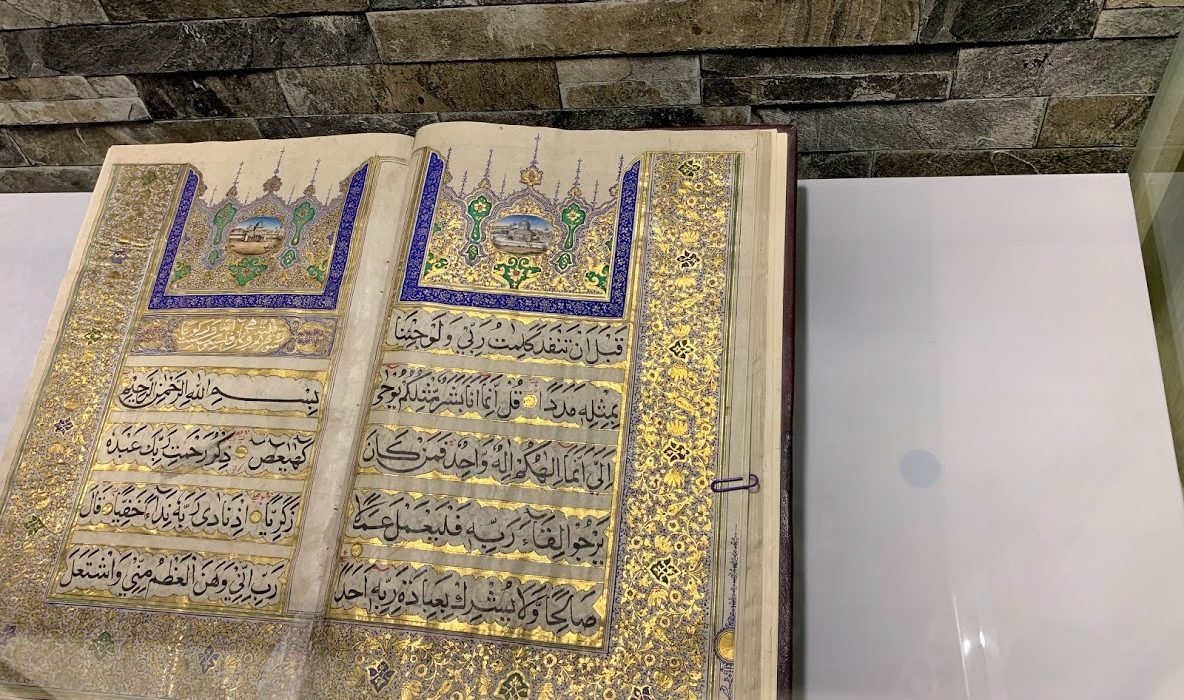 قَبْلَ اَنْ تَنْفَدَ كَلِمٰتُ رَبّٖي وَلَوْ جِئْنَا
بِمِثْلِهٖ مَدَدًا قُلْ اِنَّمَا اَنَا بَشَرٌ مِثْلُكُمْ يُوحٰٓى
اِلَيَّ اَنَّمَا اِلٰهُكُمْ اِلٰهٌ وَاحِدٌ فَمَنْ كَانَ
يَرْجُوا لِقَآءَ رَبِّهٖ فَلْيَعْمَلْ عَمَلًا
صَالِحًا وَلَا يُشْرِكْ بِعِبَادَةِ رَبِّهٖٓ اَحَدًا
بِسْمِ اللهِ الرَّحْمٰنِ الرَّحِيمِ
كٓهٰيٰعٓصٓ ذِكْرُ رَحْمَتِ رَبِّكَ عَبْدَهُ
زَكَرِيَّا اِذْ نَادٰى رَبَّهُ نِدَآءً خَفِيًّا قَالَ
رَبِّ اِنّٖي وَهَنَ الْعَظْمُ مِنّٖي وَاشْتَعَلَ